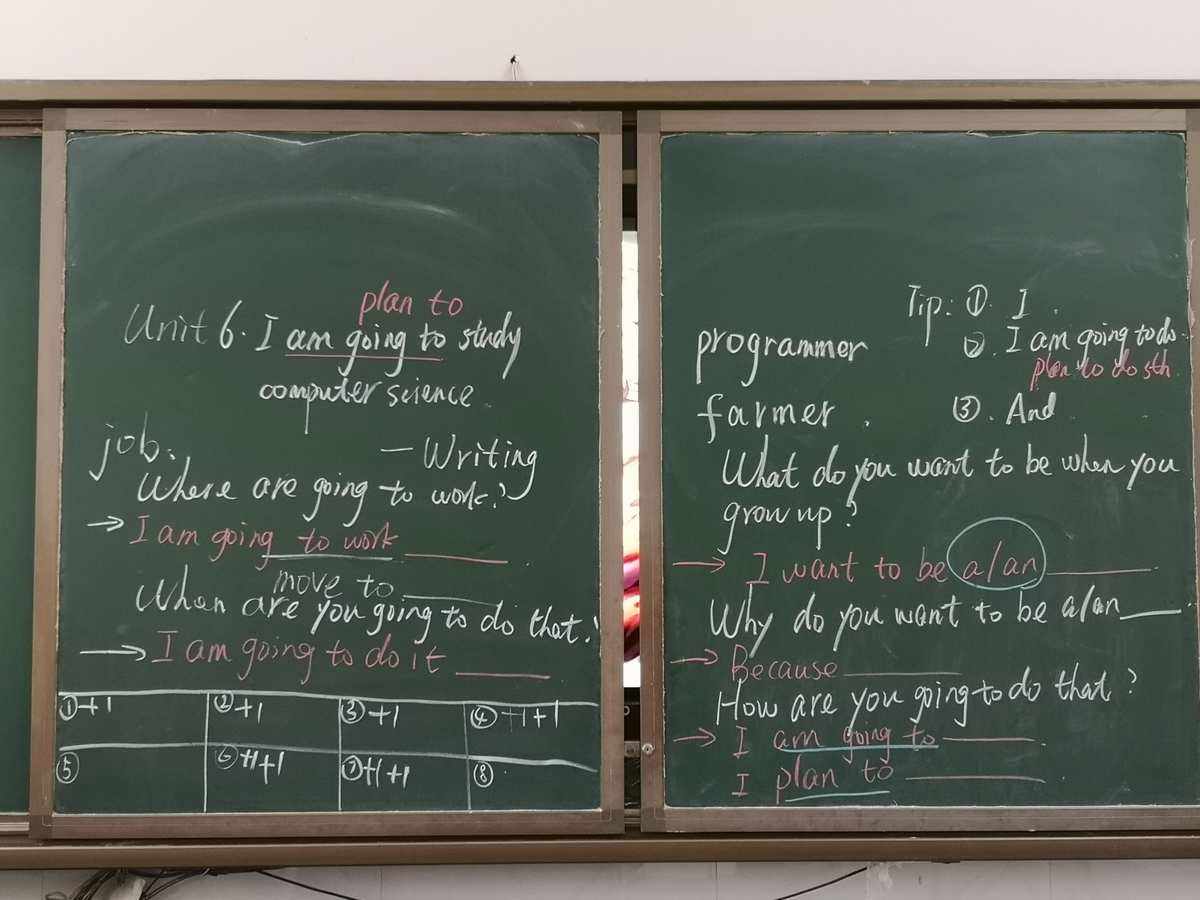 plan to
Unit 6. I am going to study
computer science.
job.
— Writing
Where are going to work?
→ I am going to work ______
move to ______
When are you going to do that?
→ I am going to do it ______
①+1 ②+1 ③+1 ④+1+1
⑤ ⑥+1+1 ⑦+1+1 ⑧
Tip: ①. I.
②. I am going to do.
plan to do sth.
③. And
programmer
farmer.
What do you want to be when you
grow up?
→ I want to be a/an ______
Why do you want to be a/an ______
→ Because ______
How are you going to do that?
→ I am going to ______
I plan to ______